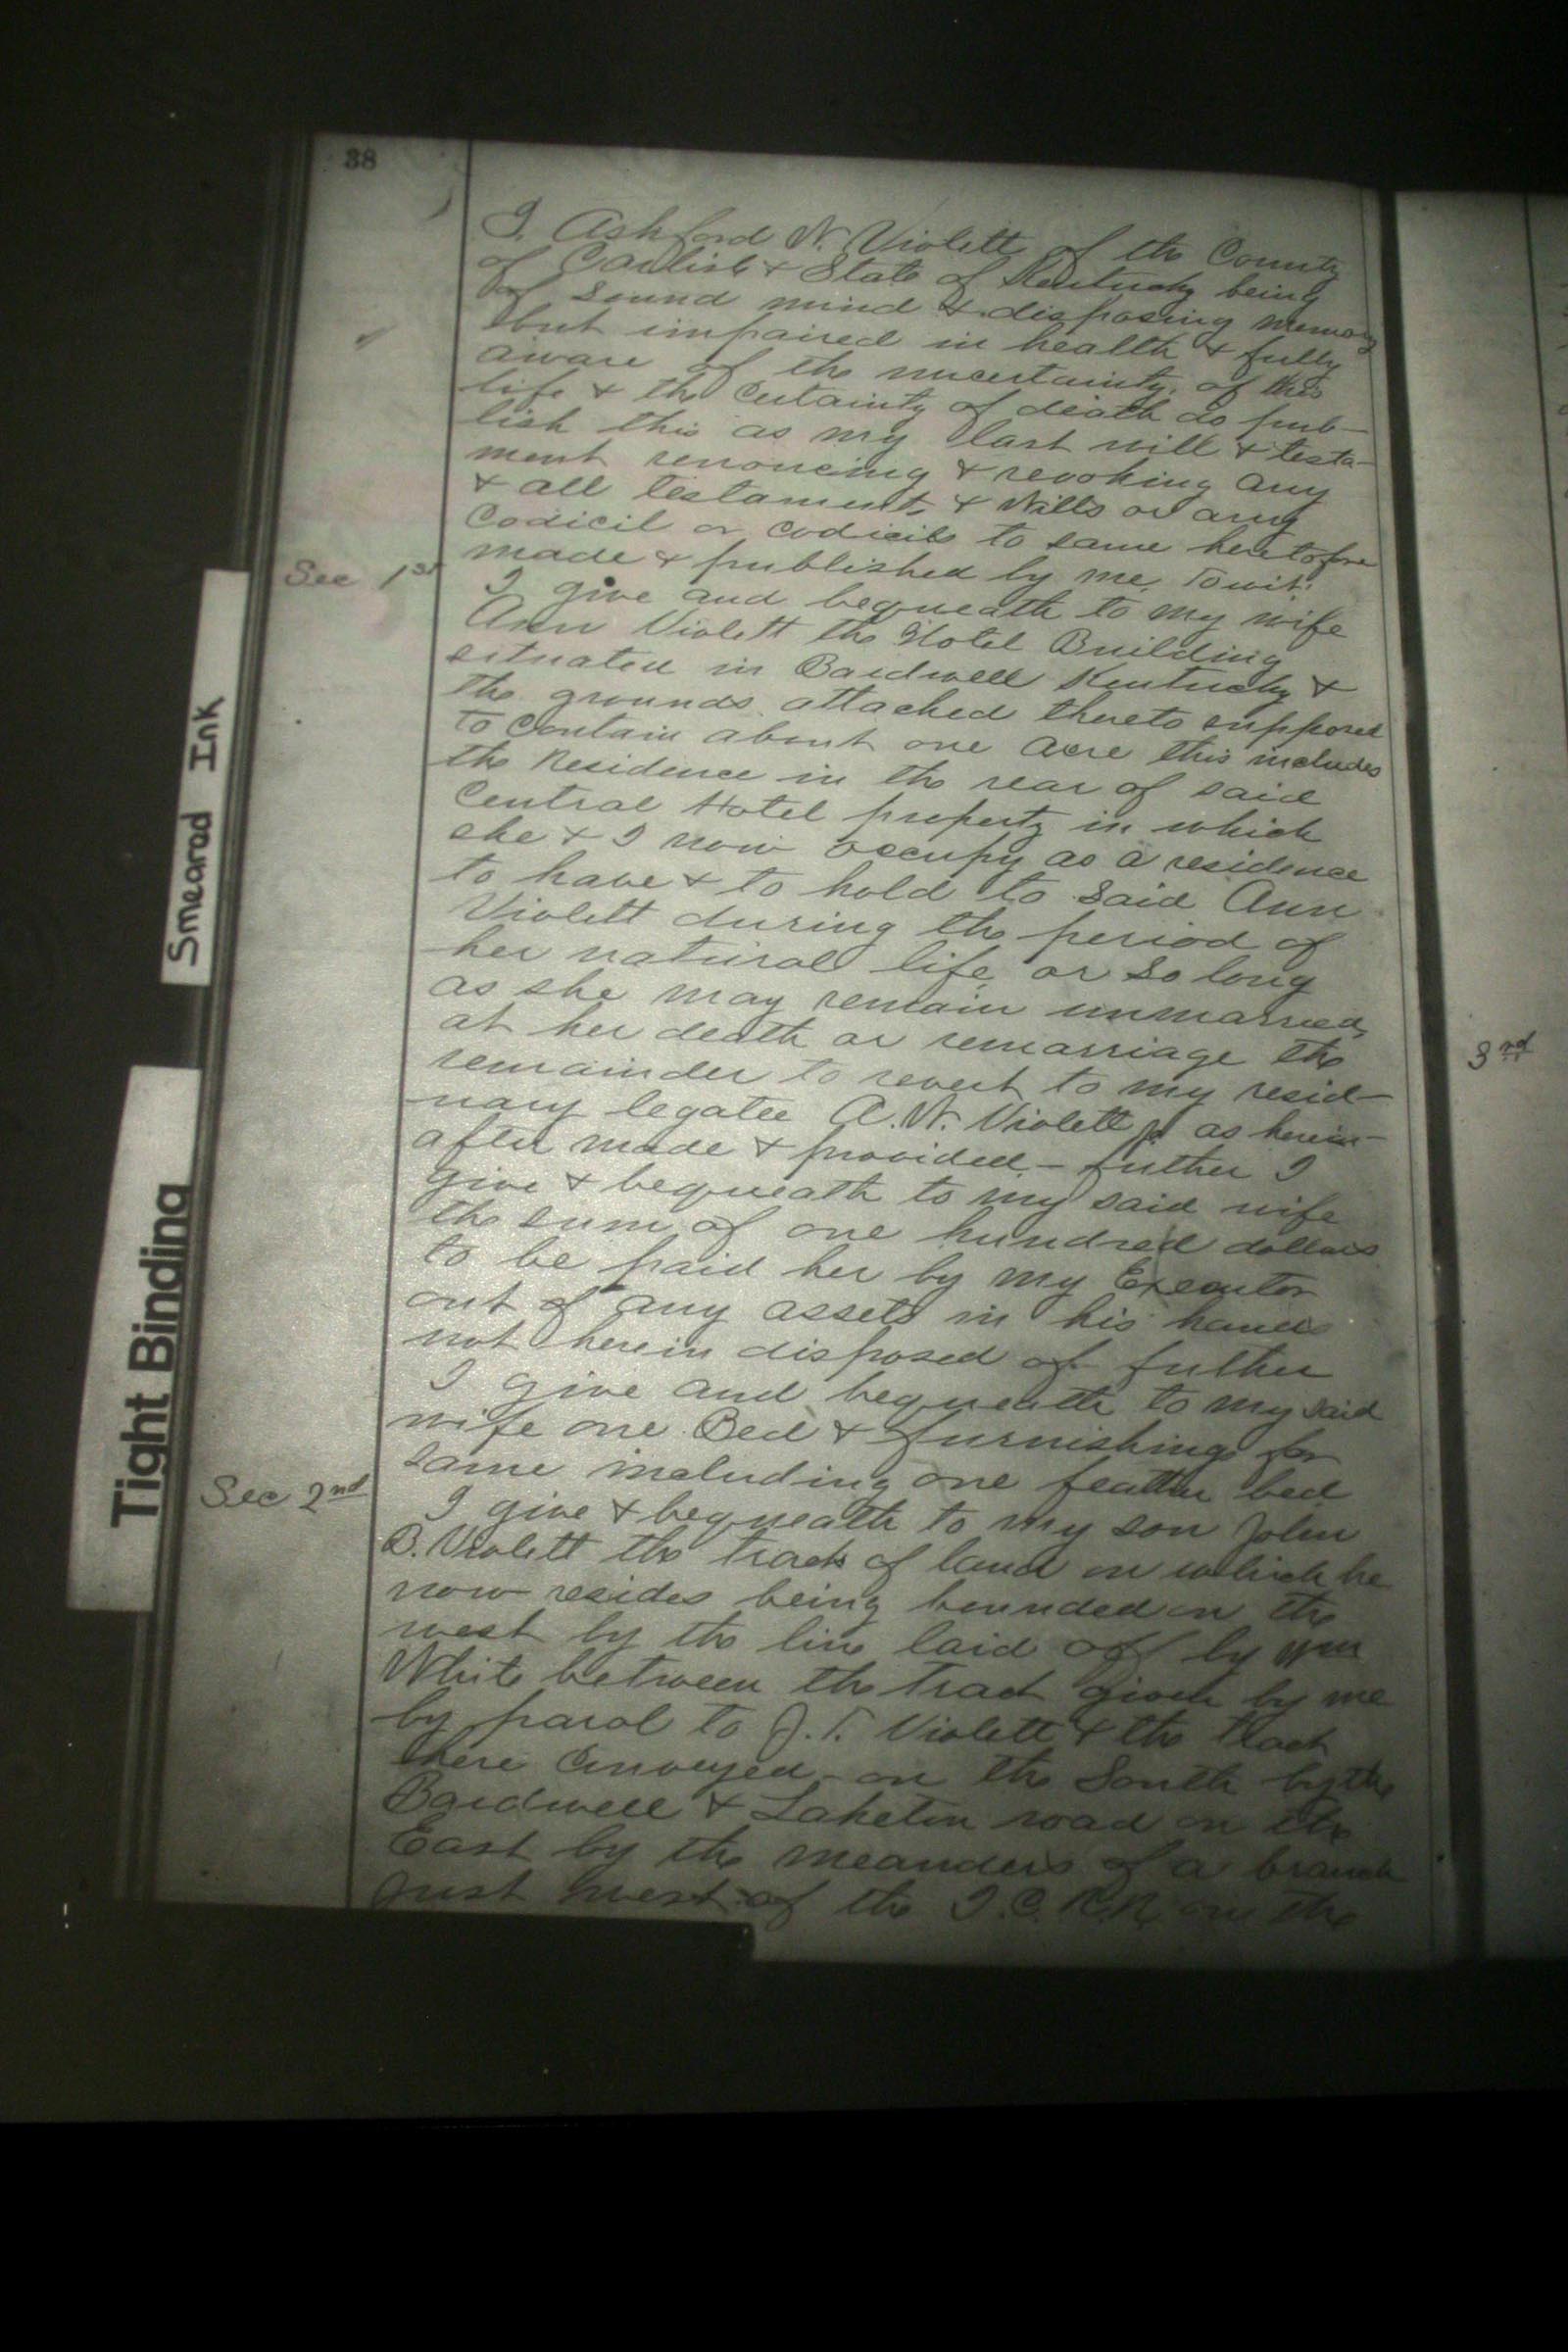 38
I, Ashford N. Violett of the County
of Carlisle & State of Kentucky being
of sound mind & disposing memory
but impaired in health & fully
aware of the uncertainty of this
life & the certainty of death do pub-
lish this as my last will & testa-
ment renouncing & revoking any
& all testaments & Wills or any
Codicil or codicils to same heretofore
made & published by me. Towit:
Sec 1st
I give and bequeath to my wife
Ann Violett the Hotel Building
situated in Bardwell Kentucky &
the grounds attached thereto supposed
to contain about one acre this includes
the Residence in the rear of said
Central Hotel property in which
she & I now occupy as a residence
to have & to hold to said Ann
Violett during the period of
her natural life, or so long
as she may remain unmarried,
at her death or remarriage the
remainder to revert to my resid-
uary legatee A. N. Violett Jr as herein-
after made & provided - futher I
give & bequeath to my said wife
the sum of one hundred dollars
to be paid her by my Executor
out of any assets in his hands
not herein disposed of futher
I give and bequeath to my said
wife one Bed & furnishings for
same including one feather bed
Sec 2nd
I give & bequeath to my son John
B. Violett the track of land on which he
now resides being bounded on the
west by the line laid off by Wm
White between the tract given by me
by parol to J. T. Violett & the track
here conveyed - on the South by the
Bardwell & Laketon road on the
East by the meanders of a branch
just west of the I. C. R.R. on the
3rd
Smearad Ink
Tight Binding